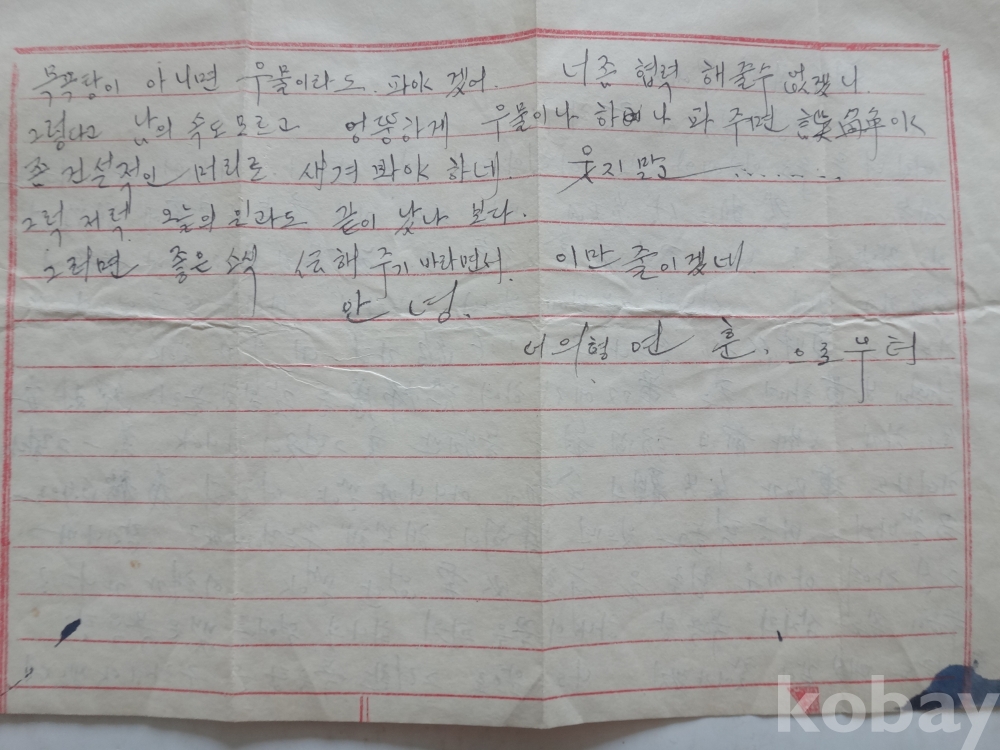 목욕탕이 아니면 우물이라도. 파야 겠어. 너좀 협력 해줄수 없겠니.
그렇다고 남의 속도모르고 엉뚱하게 우물이나 하나 파 주면 誤解야
좀 건설적인 머리로 새겨 봐야 하네. 웃지말고 ........
그럭 저럭. 오늘의 일과도 끝이 났나 보다.
그러면 좋은 소식 傳해 주기 바라면서. 이만 줄이겠네
안 녕.
너의 형 연 훈. 으로 부터
kobay